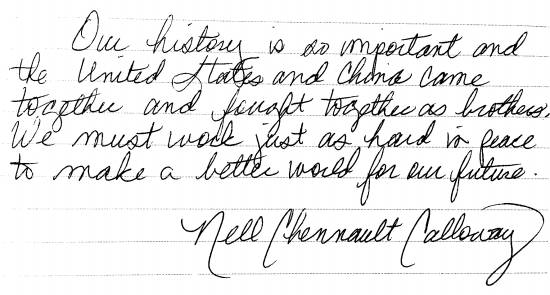 Our history is so important and
the United States and China came
together and fought together as brothers.
We must work just as hard in peace
to make a better world for our future.
Nell Chennault Calloway